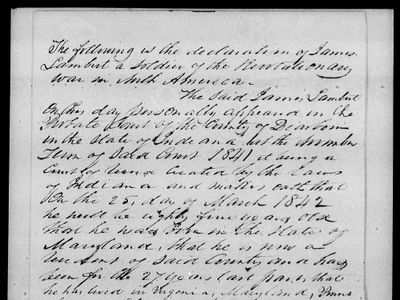 The following is the declaration of James
Lambert a soldier of the Revolutionary
war in North America.
The Said James Lambert
on this day personally appeared in the
Probate Court of the County of Dearborn
in the State of Indiana at the November
Term of Said Court 1841 it being a
Court of being created by the Laws
of Indiana and makes oath that
On the 25, day of March 1842
he will be eighty five years old
that he was Born in the State of
Maryland, that he is now a
resident of Said County and has
been for the 27 years last past, that
he has lived in Virginia, Maryland, Penns